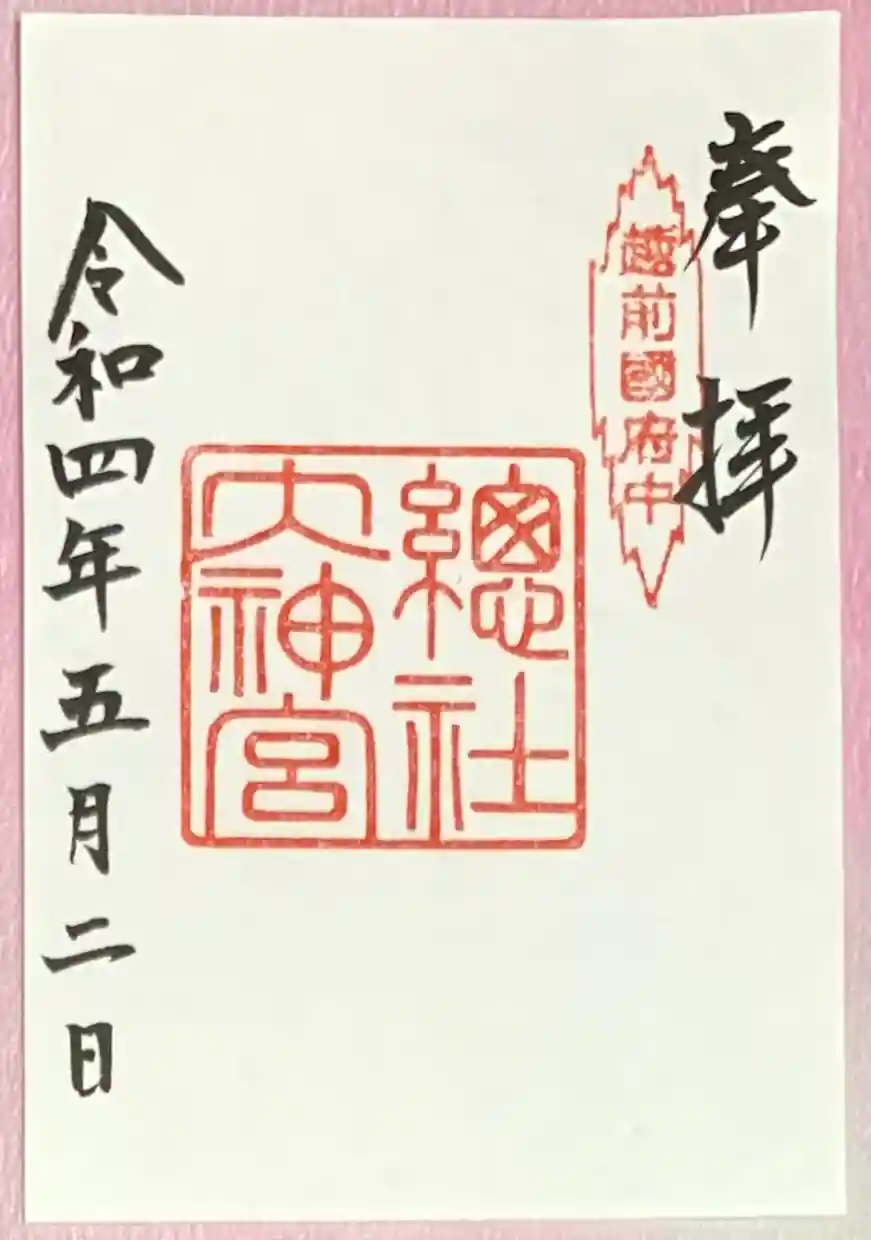 奉拝
越前國府中
總社
大神宮
令和四年五月二日